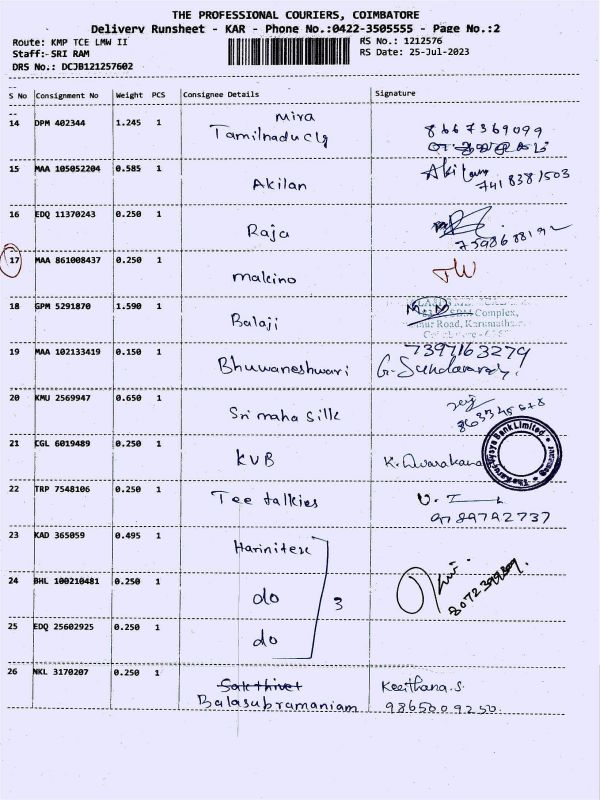 THE PROFESSIONAL COURIERS, COIMBATORE
Delivery Runsheet - KAR - Phone No.:0422-3505555 - Page No.:2
Route: KMP TCE LMW II
RS No.: 1212576
Staff:- SRI RAM
RS Date: 25-Jul-2023
DRS No.: DCJB121257602
S No Consignment No Weight PCS Consignee Details Signature
14 DPM 402344 1.245 1 Mira
Tamilnadu clg
8667369099
15 MAA 105052204 0.585 1 Akilan
7418381503
16 EDQ 11370243 0.250 1 Raja
17 MAA 861008437 0.250 1 Makino
18 GPM 5291870 1.590 1 Balaji
Complex,
Road,
19 MAA 102133419 0.150 1 Bhuwaneshwari
7397163279
20 KMU 2569947 0.650 1 Sri maha Silk
21 CGL 6019489 0.250 1 KVB
Bank Limited
22 TRP 7548106 0.250 1 Tee talkies
9789792737
23 KAD 365059 0.495 1 Harinitex
24 BHL 100210481 0.250 1 do 3
25 EDQ 25602925 0.250 1 do
26 NKL 3170207 0.250 1 Sakthivel
Balasubramaniam
Keerthana.S.
9865009250